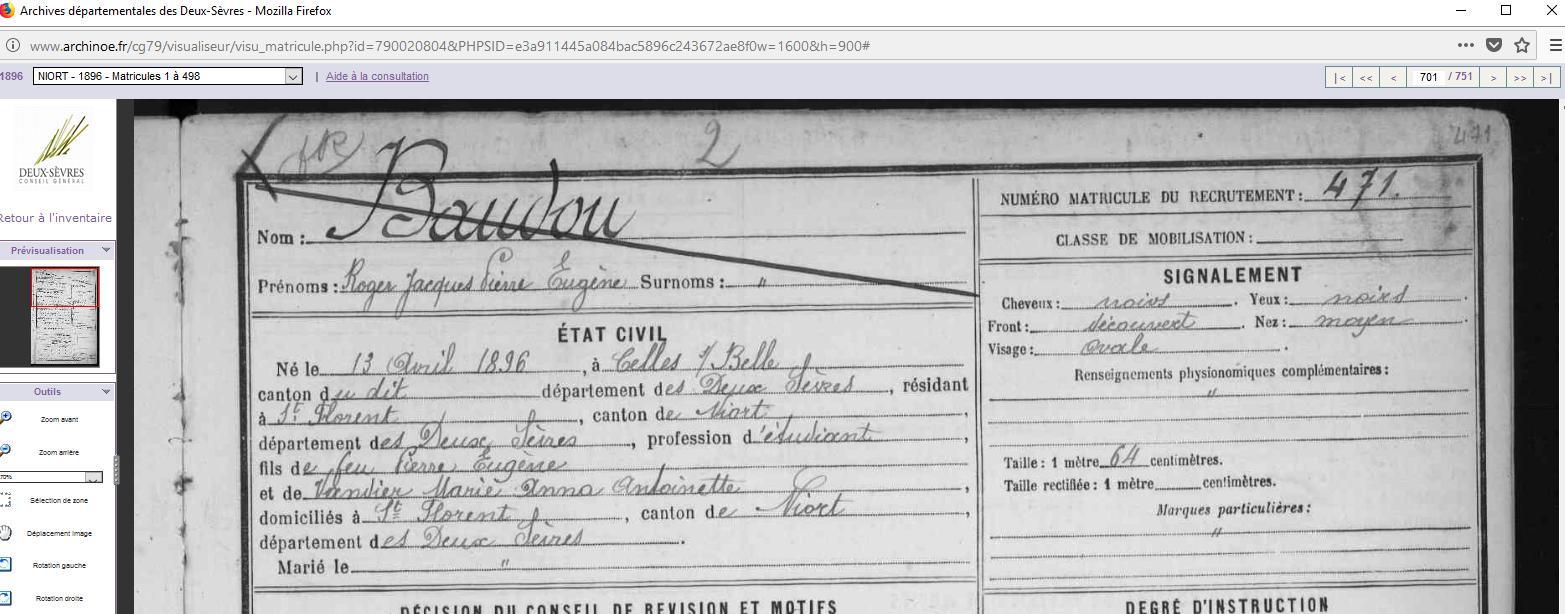 Archives départementales des Deux-Sèvres - Mozilla Firefox
www.archinoe.fr/cg79/visualiseur/visu_matricule.php?id=790020804&PHPSID=e3a911445a084bac5896c243672ae8f0w=1600&h=900#
1896 NIORT - 1896 - Matricules 1 à 498 | Aide à la consultation |< << < 701 / 751 > >> >|
DEUX-SÈVRES
CONSEIL GENERAL
Retour à l'inventaire
Prévisualisation
Outils
Zoom avant
Zoom arrière
70%
Sélection de zone
Déplacement image
Rotation gauche
Rotation droite
2
471
Nom : Baudou
Prénoms : Roger Jacques Pierre Eugène Surnoms : "
ÉTAT CIVIL
Né le 13 Avril 1896, à Celles s/ Belle
canton du dit département des Deux Sèvres, résidant
à St Florent, canton de Niort,
département des Deux Sèvres, profession d'étudiant,
fils de feu Pierre Eugène
et de Vandier Marie Anna Antoinette,
domiciliés à St Florent, canton de Niort,
département des Deux Sèvres.
Marié le "
DÉCISION DU CONSEIL DE REVISION ET MOTIFS
NUMÉRO MATRICULE DU RECRUTEMENT : 471.
CLASSE DE MOBILISATION :
SIGNALEMENT
Cheveux : noirs. Yeux : noirs.
Front : découvert. Nez : moyen.
Visage : ovale.
Renseignements physionomiques complémentaires :
"
Taille : 1 mètre 64 centimètres.
Taille rectifiée : 1 mètre centimètres.
Marques particulières :
"
DEGRÉ D'INSTRUCTION